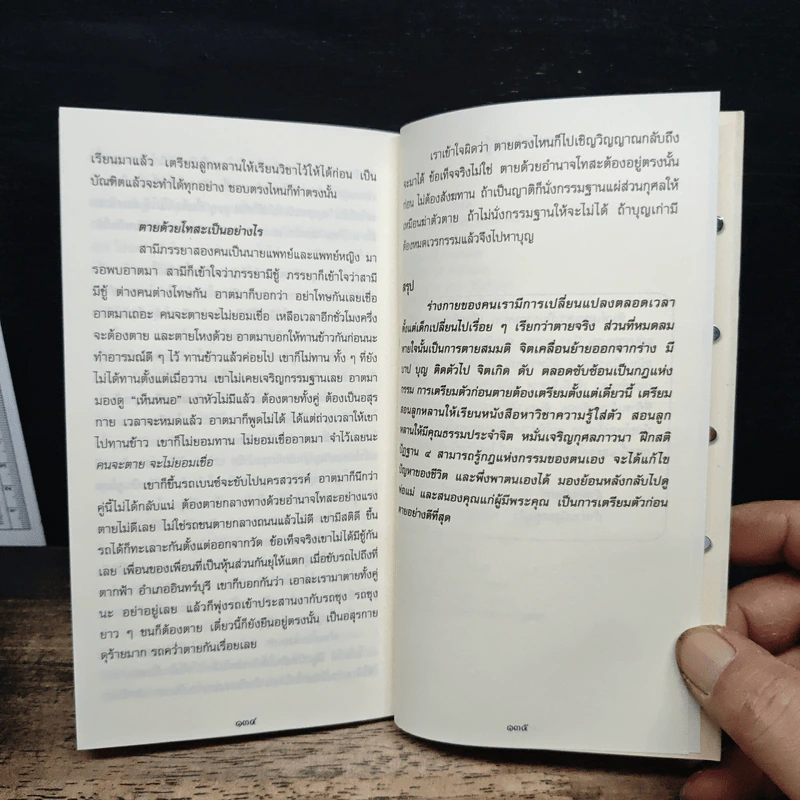 เรียนมาแล้ว เตรียมลูกหลานให้เรียนวิชาไว้ให้ได้ก่อน เป็น
บัณฑิตแล้วจะทำได้ทุกอย่าง ชอบตรงไหนก็ทำตรงนั้น
ตายด้วยโทสะเป็นอย่างไร
สามีภรรยาสองคนเป็นนายแพทย์และแพทย์หญิง มา
รอพบอาตมา สามีก็เข้าใจว่าภรรยามีชู้ ภรรยาก็เข้าใจว่าสามี
มีชู้ ต่างคนต่างโทษกัน อาตมาก็บอกว่า อย่าโทษกันเลยเชื่อ
อาตมาเถอะ คนจะตายจะไม่ยอมเชื่อ เหลือเวลาอีกชั่วโมงครึ่ง
จะต้องตาย และตายโหงด้วย อาตมาบอกให้ทานข้าวกันก่อนนะ
ทำอารมณ์ดี ๆ ไว้ ทานข้าวแล้วค่อยไป เขาก็ไม่ทาน ทั้ง ๆ ที่ยัง
ไม่ได้ทานตั้งแต่เมื่อวาน เขาไม่เคยเจริญกรรมฐานเลย อาตมา
มองดู “เห็นหนอ” เงาหัวไม่มีแล้ว ต้องตายทั้งคู่ ต้องเป็นอสุร
กาย เวลาจะหมดแล้ว อาตมาก็พูดไม่ได้ ได้แต่ถ่วงเวลาให้เขา
ไปทานข้าว เขาก็ไม่ยอมทาน ไม่ยอมเชื่ออาตมา จำไว้เลยนะ
คนจะตาย จะไม่ยอมเชื่อ
เขาก็ขึ้นรถเบนซ์จะขับไปนครสวรรค์ อาตมาก็นึกว่า
คู่นี้ไม่ได้กลับแน่ ต้องตายกลางทางด้วยอำนาจโทสะอย่างแรง
ตายไม่ดีเลย ไม่ใช่รถชนตายกลางถนนแล้วไม่ดี เขามีสติดี ขึ้น
รถได้ก็ทะเลาะกันตั้งแต่ออกจากวัด ข้อเท็จจริงเขาไม่ได้มีชู้กัน
เลย เพื่อนของเพื่อนที่เป็นหุ้นส่วนกันยุให้แตก เมื่อขับรถไปถึงที่
ตากฟ้า อำเภออินทร์บุรี เขาก็บอกกันว่า เอาละเรามาตายทั้งคู่
นะ อย่าอยู่เลย แล้วก็พุ่งรถเข้าประสานงากับรถซุง รถซุง
ยาว ๆ ชนก็ต้องตาย เดี๋ยวนี้ก็ยังยืนอยู่ตรงนั้น เป็นอสุรกาย
ดุร้ายมาก รถคว่ำตายกันเรื่อยเลย
๑๓๔
เราเข้าใจผิดว่า ตายตรงไหนก็ไปเชิญวิญญาณกลับถึง
จะมาได้ ข้อเท็จจริงไม่ใช่ ตายด้วยอำนาจโทสะต้องอยู่ตรงนั้น
ก่อน ไม่ต้องสังฆทาน ถ้าเป็นญาติก็นั่งกรรมฐานแผ่ส่วนกุศลให้
เหมือนฆ่าตัวตาย ถ้าไม่นั่งกรรมฐานให้จะไม่ได้ ถ้าบุญเก่ามี
ต้องหมดเวรกรรมแล้วจึงไปหาบุญ
สรุป
ร่างกายของคนเรามีการเปลี่ยนแปลงตลอดเวลา
ตั้งแต่เด็กเปลี่ยนไปเรื่อย ๆ เรียกว่าตายจริง ส่วนที่หมดลม
หายใจนั้นเป็นการตายสมมติ จิตเคลื่อนย้ายออกจากร่าง มี
บาป บุญ ติดตัวไป จิตเกิด ดับ ตลอดซับซ้อนเป็นกฎแห่ง
กรรม การเตรียมตัวก่อนตายต้องเตรียมตั้งแต่เดี๋ยวนี้ เตรียม
สอนลูกหลานให้เรียนหนังสือหาวิชาความรู้ใส่ตัว สอนลูก
หลานให้มีคุณธรรมประจำจิต หมั่นเจริญกุศลภาวนา ฝึกสติ
ปัฏฐาน ๔ สามารถรู้กฎแห่งกรรมของตนเอง จะได้แก้ไข
ปัญหาของชีวิต และพึ่งพาตนเองได้ มองย้อนหลังกลับไปดู
พ่อแม่ และสนองคุณแก่ผู้มีพระคุณ เป็นการเตรียมตัวก่อน
ตายอย่างดีที่สุด
๑๓๕